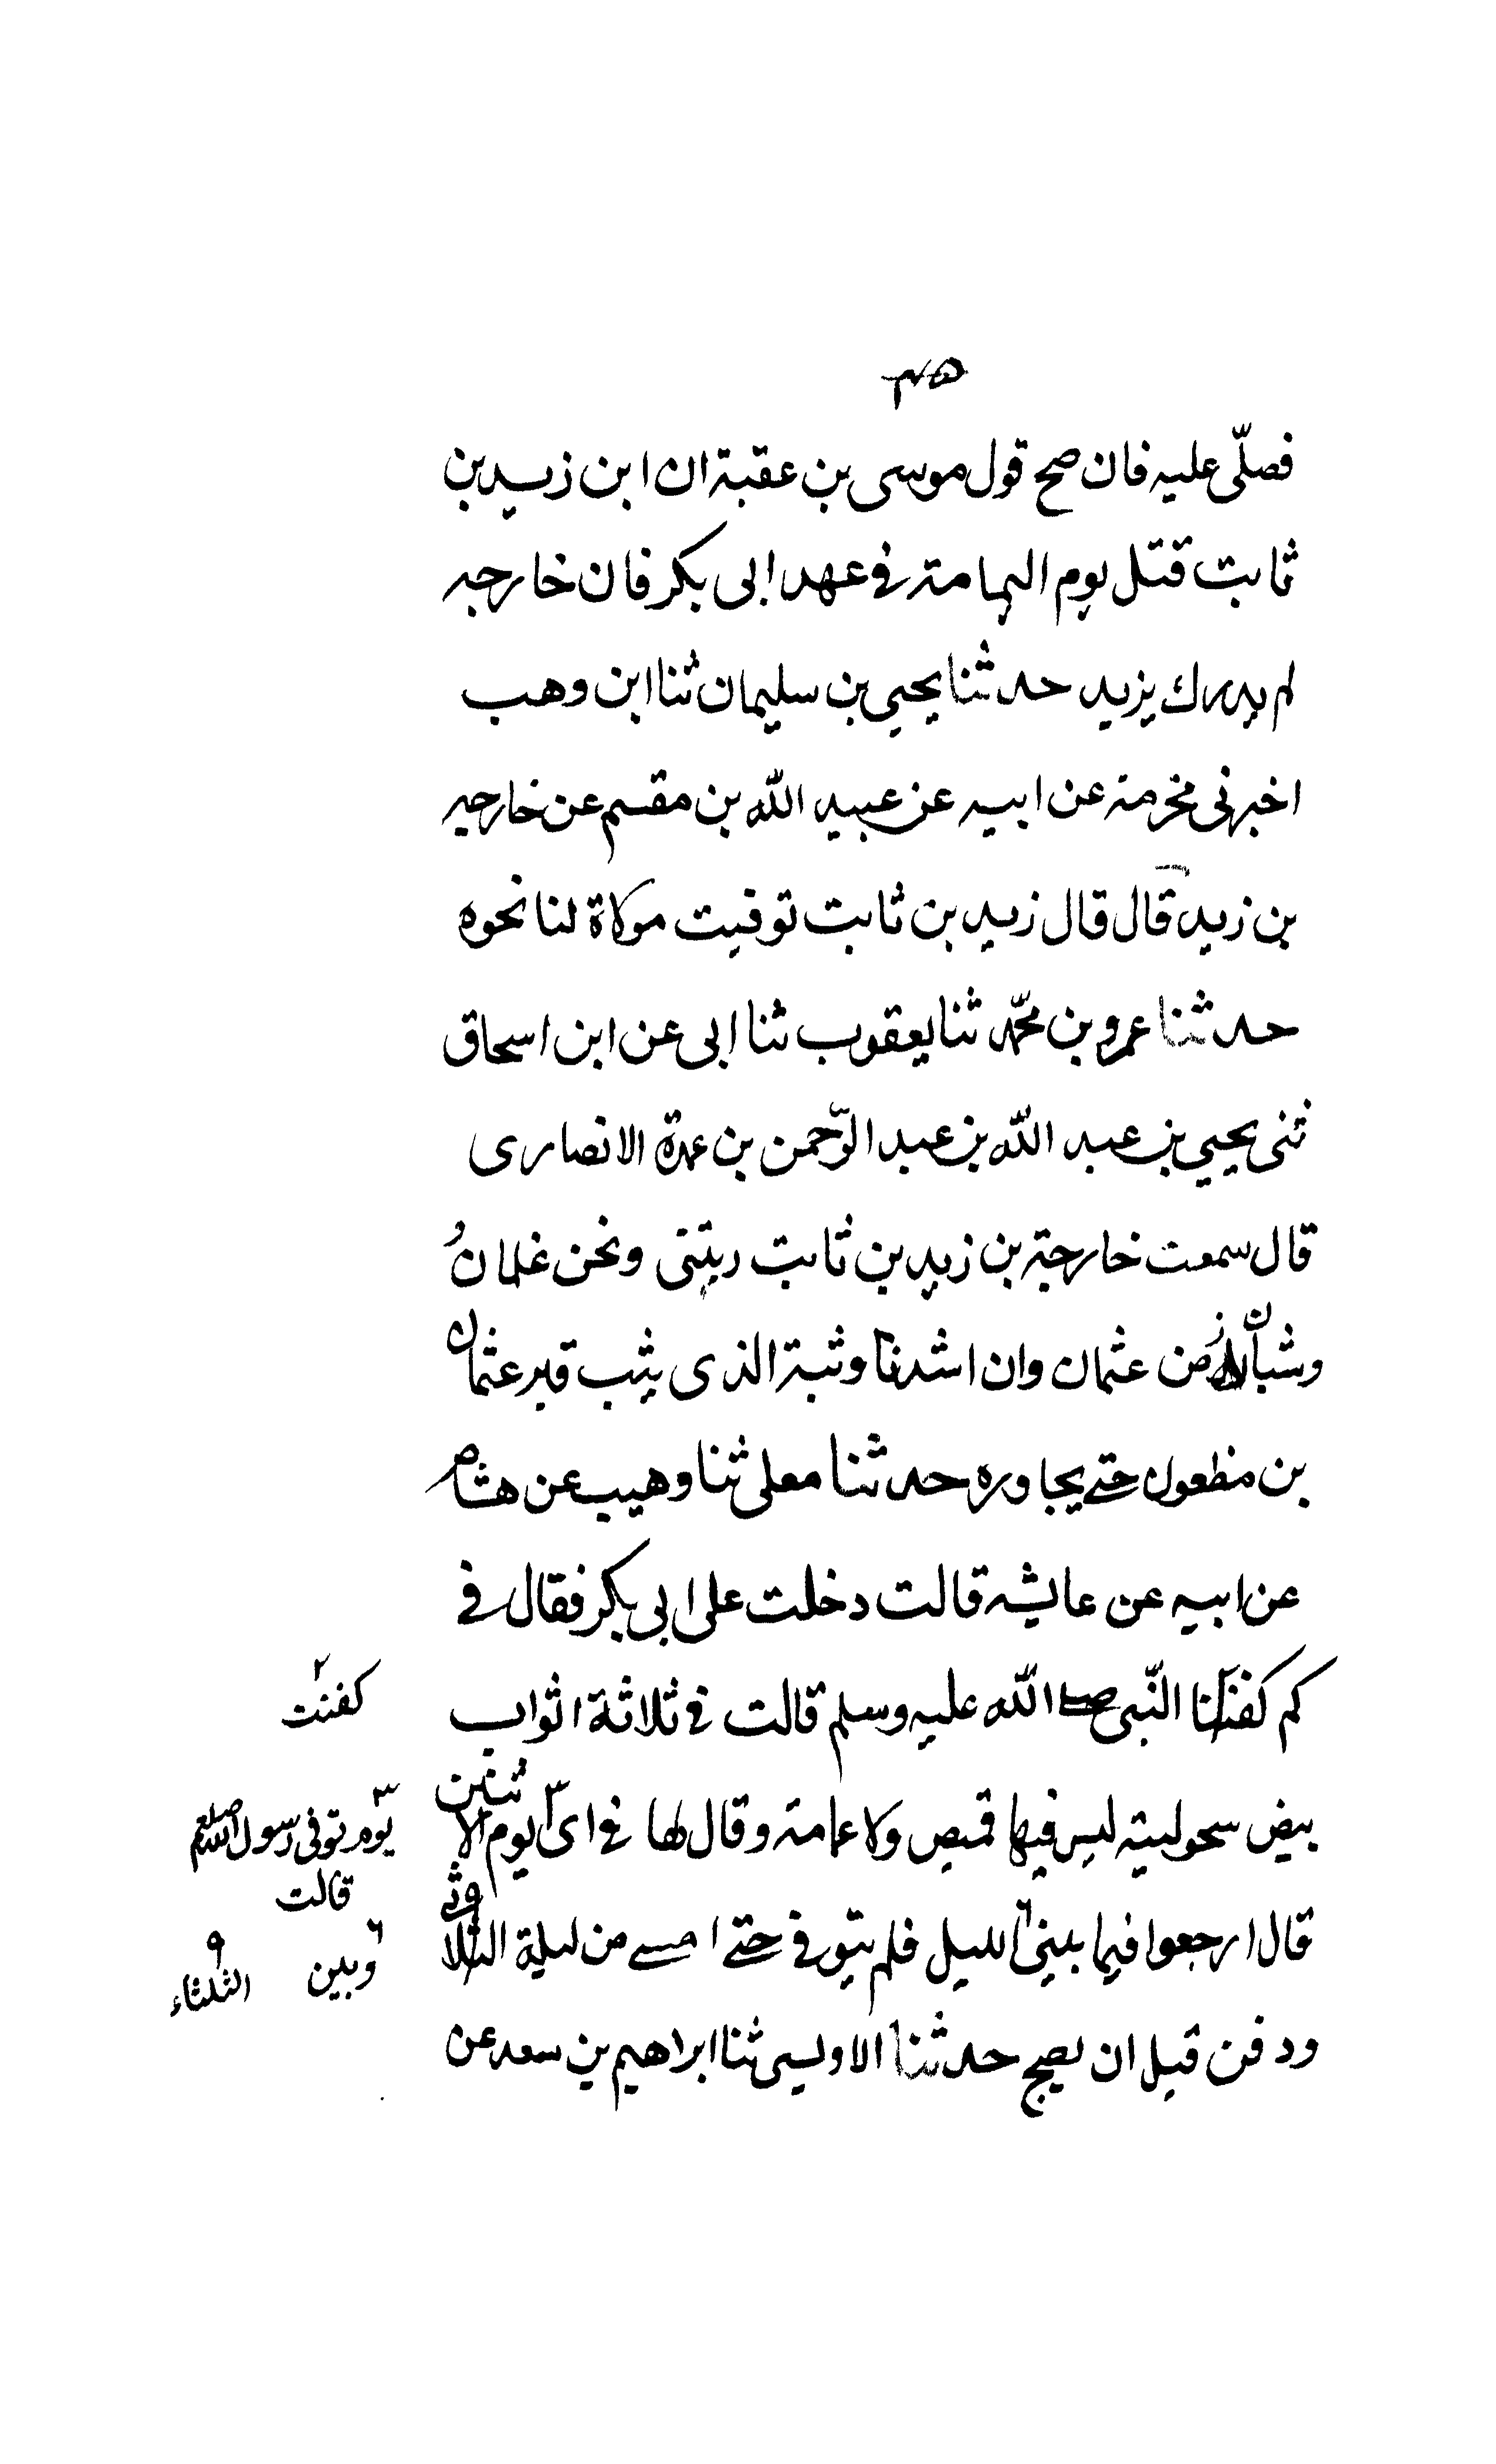 فصلّى عليه فان صح قول موسى بن عقبة ان ابن زيد بن
ثابت قتل يوم اليمامة في عهد ابى بكر فان خارجه
لم يدرك يزيد حدثنا يحيى بن سليمان ثنا ابن وهب
اخبرنى مخرمة عن ابيه عن عبيد الله بن مقسم عن خارجه
بن زيد قال قال زيد بن ثابت توفيت مولاة لنا نحوه
حدثنا عمرو بن محمّد ثنا يعقوب ثنا ابى عن ابن اسحاق
ثنى يحيى بن عبد الله بن عبد الرّحمن بن عمرة الانصارى
قال سمعت خارجة بن زيد بن ثابت ريتنى ونحن غلمانُ
وشبان زمن عثمان وان اشدنا وثبة الذى يثب قبر عثمان
بن مظعون حتى يجاوره حدثنا معلى ثنا وهيب عن هشام
عن ابيه عن عايشه قالت دخلت على ابى بكر فقال في
كم كفنا النّبى صلى الله عليه وسلم قالت في ثلاثة اثواب
كفنت
بيض سحولية ليس فيها قميص ولا عمامة وقال لها في اىّ يوم الاثنين
يوم توفى رسول الله صلعم
قالت
قال ارجعوا فيما بينى الليل فلم يتوفى حتى امسى من ليلة الثلاثا
وبين
الثلثاء
ودفن قبل ان يصبح حدثنا الاويسى ثنا ابراهيم بن سعد عن